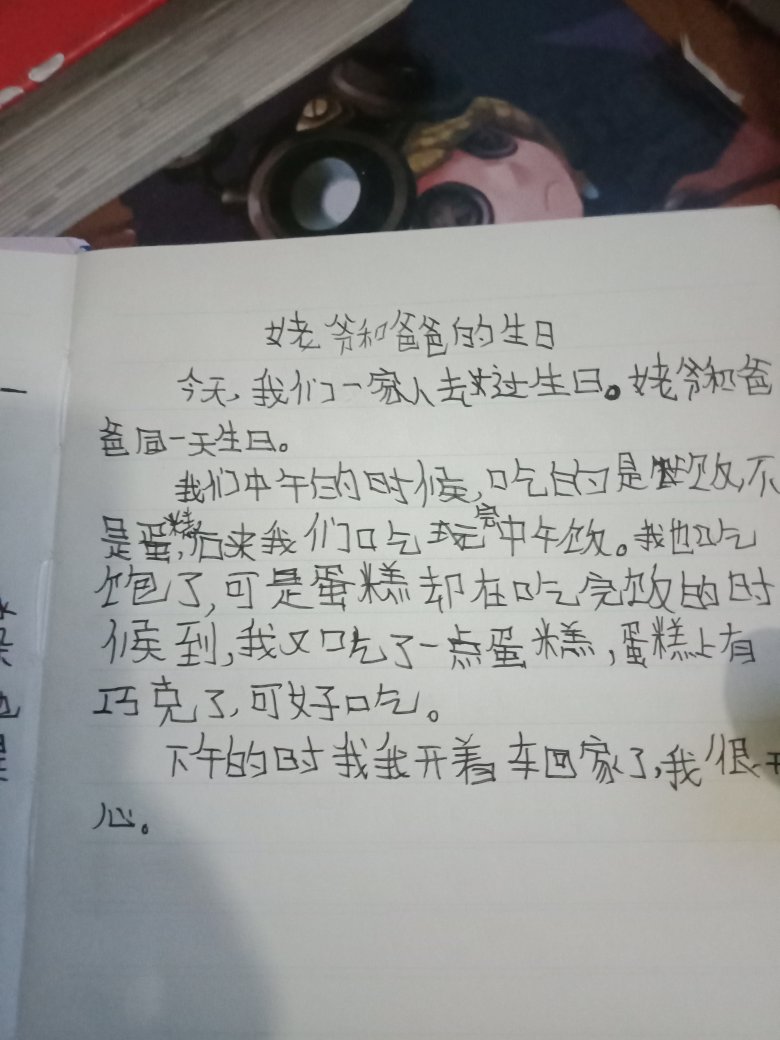 姥爷和爸爸的生日
今天,我们一家人去过生日。姥爷和爸
爸同一天生日。
我们中午的时候,吃的是饭,不
是蛋糕,后来我们吃完中午饭。我也吃
饱了,可是蛋糕却在吃完饭的时
候到,我又吃了一点蛋糕,蛋糕上有
巧克了,可好吃。
下午的时我我开着车回家了,我很开
心。